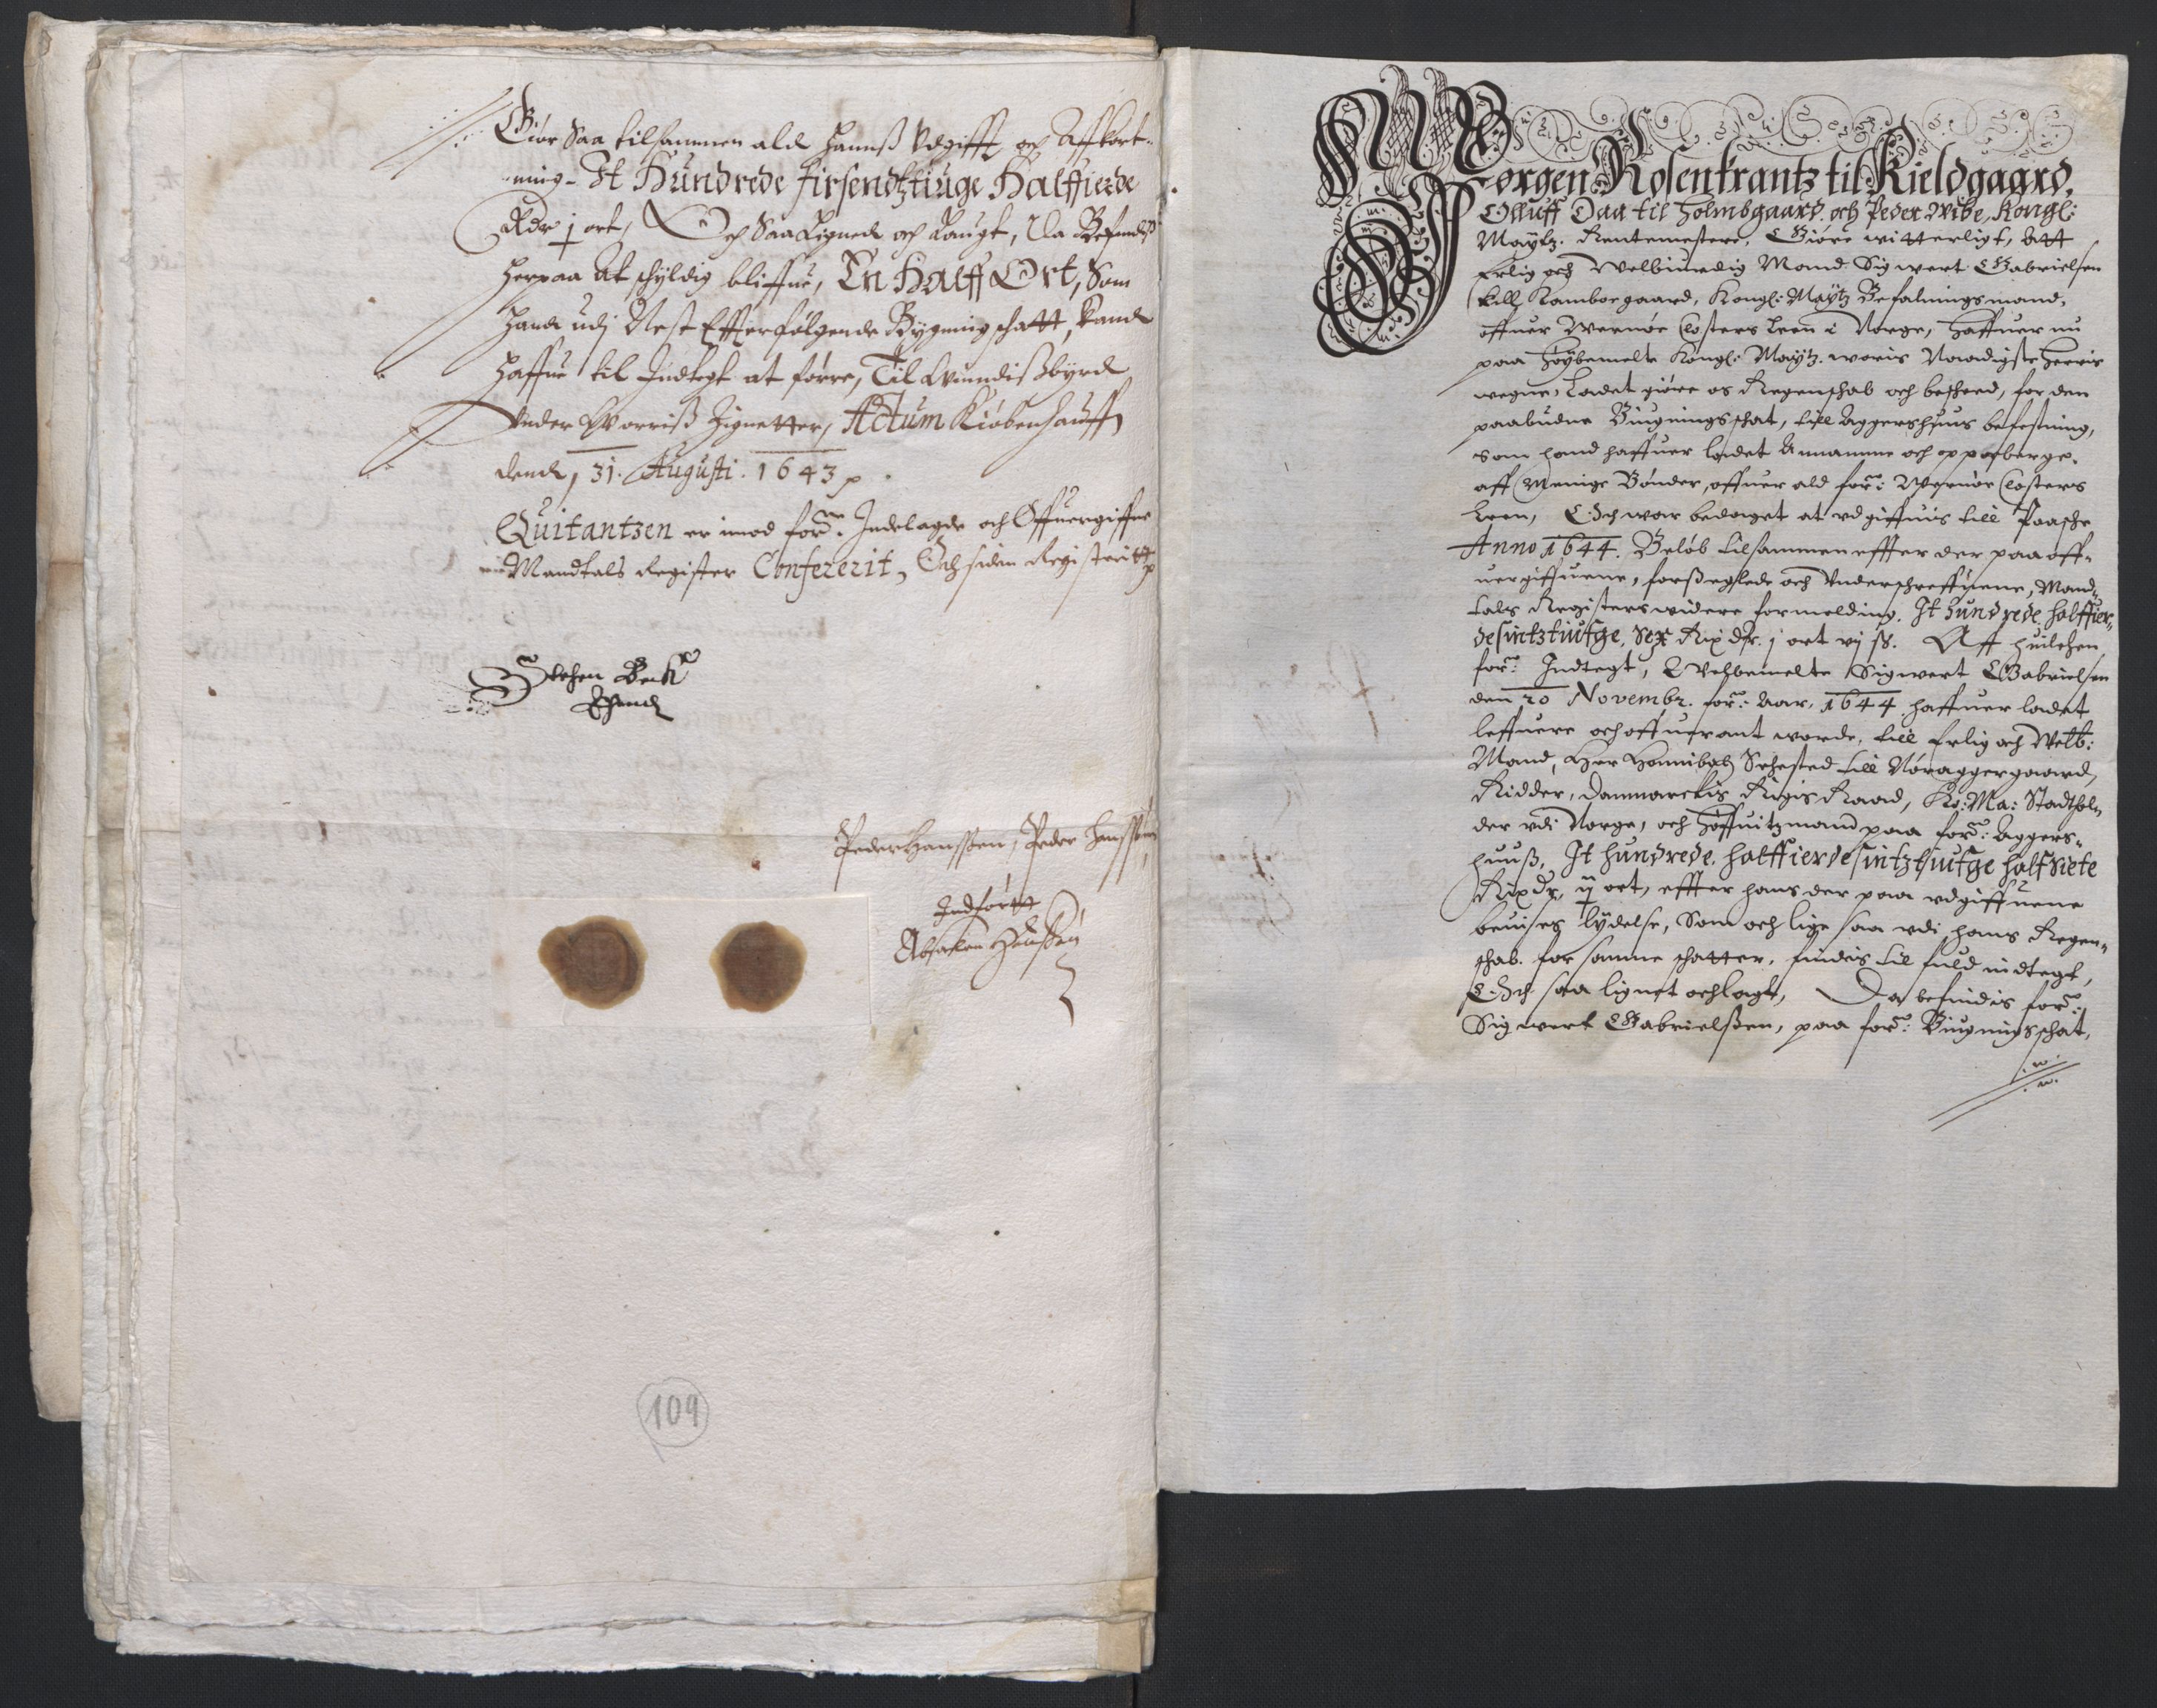 Giör Saa tilsammen ald hanß Vdgifft och Affkort-
ning- It Hundrede firsendtztiuge Halffierde
Rdr j ort, Och Saa Lignede och Laugt, Da Befindiß
herpaa At schyldig bliffue, En Halff Ort, Som
hand udj Nest Effterfølgende Bygning schatt, kand
haffue til Indtegt at føre, Til Vindißbyrd
Under Worriß Zignetter, Actum Kiøbenhauffn
dend, 31. Augusti. 1643
Quitantzen er imod forne: Indelagde och Offuergiffne
Mandtals Register Confererit, Och siden Registerit
Stehen Beck
Ehandt
Peder Hanssen, Peder Hanssen
Indført
Absalon Hanßen
109
Jørgen Rosenkrantz til Kieldgaard,
Olluff Daa til Holmbgaard, och Peder Wibe, Kongl:
Maytz. Rentemestere, Giöre witterligt, Att
Erlig och Welbiurdig Mand Sigwert Gabrielsen
till Kamboegaard, Kongl: Maytz Befalningsmand,
offuer Wernöe Closters Leen i Norge, haffuer nu
paa høybemelte Kongl: Maytz. woris Naadigste Herris
wegne, Ladet giöre os Regenschab och bescheed, for den
paabudne Biugningsschat, till Aggershuus befestning,
som hand haffuer ladet Annamme och oppeberge.
aff Menige Bönder, offuer ald forne: Wernöe Closters
Leen, Och war bedaget at vdgiffuis till Paasche
Anno 1644. Beløb tilsammen effter der paa off-
uergiffuene, forßeglede och Underschreffuene, Mand-
tals Registers widere formelding. It hundrede halffier-
desintztiufge, Sex Rix dr. j ort vj ß. Aff huilchen
forne: Indtegt, Welbemelte Sigwert Gabrielsen
den 20 Novembr. forne: Aar, 1644. haffuer ladet
leffuere och offuerant worde, till Erlig och Welb:
Mand, Her Hannibal Sehested till Nøraggergaard,
Ridder, Danmarckis Rigis Raad, Ko: Ma: Stadthol-
der vdi Norge, och høffuitzmand paa forne: Aggers-
huuß, It hundrede halffierdesintztiufge halfsiete
Rixdr, ij ort, effter hans der paa vdgiffuene
beuises lydelse, Som och lige saa vdi hans Regen-
schab. for samme schatter, findis til fuld indtegt,
Och saa lignet och lagt, Da befindis forne:
Sigwert Gabrielßen, paa forne: Biugningsschat,